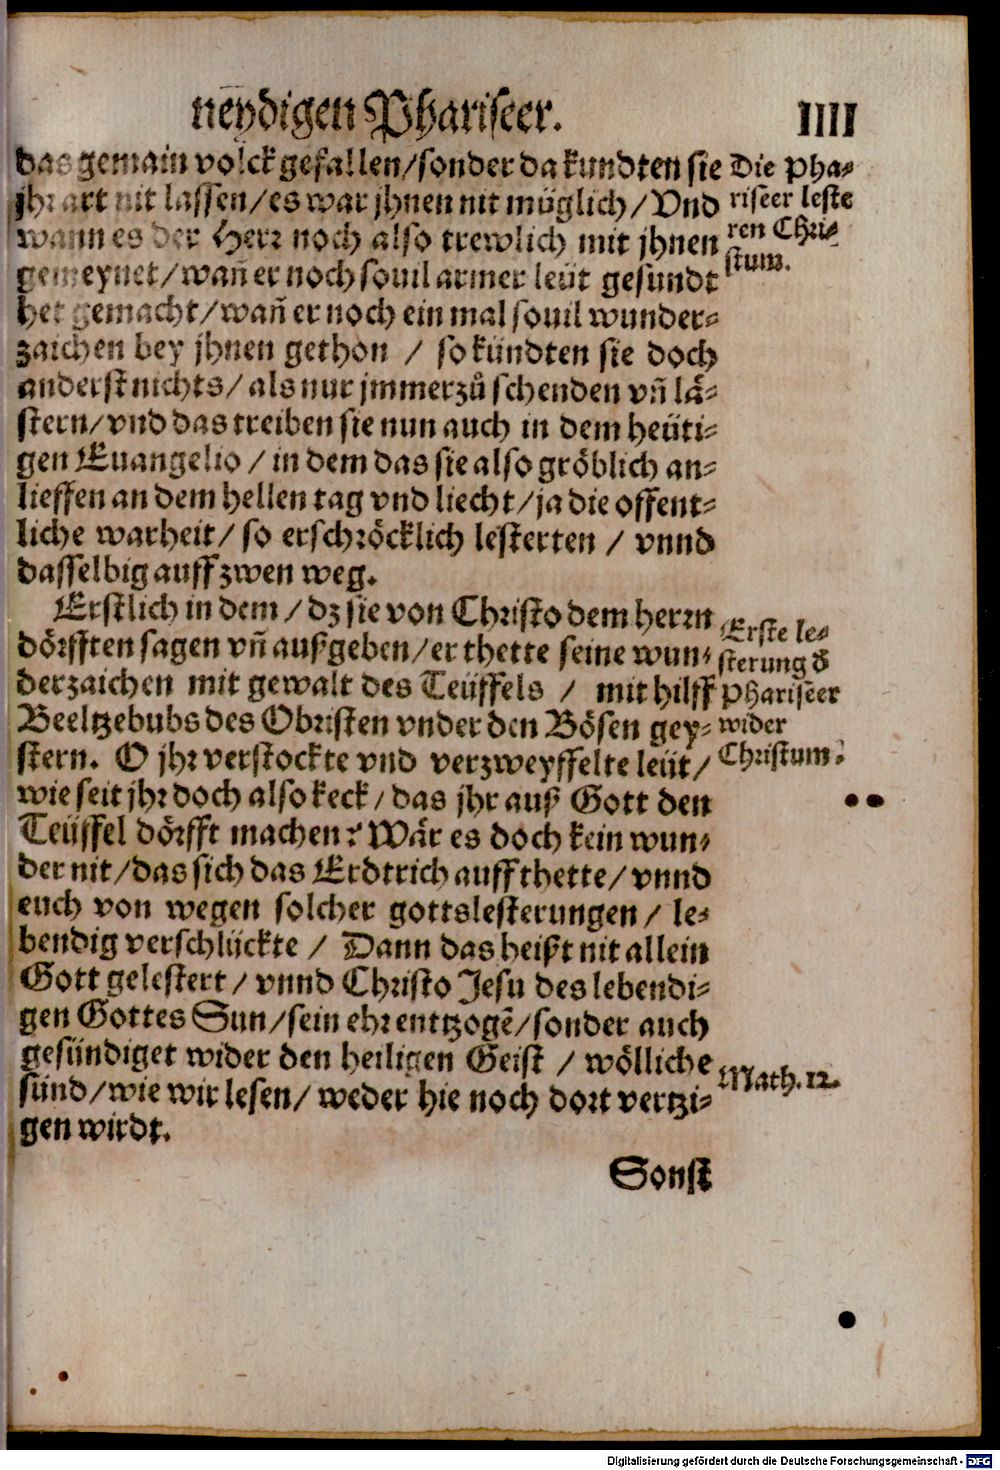 neydigen Phariseer. IIII
das gemain volck gefallen/sonder da kundten sie
jhr art nit lassen/es war jhnen nit müglich/Vnd
wann es der Herr noch also trewlich mit jhnen
gemeynet/wañ er noch souil armer leüt gesundt
het gemacht/wañ er noch ein mal souil wunder-
zaichen bey jhnen gethon / so kündten sie doch
anderst nichts/als nur jmmerzů schenden vñ lä-
stern/vnd das treiben sie nun auch in dem heüti-
gen Euangelio / in dem das sie also gröblich an-
lieffen an dem hellen tag vnd liecht/ja die offent-
liche warheit/ so erschröcklich lesterten / vnnd
dasselbig auff zwen weg.
Die Pha-
riseer leste
ren Chri-
stum.
Erstlich in dem / dz sie von Christo dem herrn
dörfften sagen vñ außgeben/er thette seine wun-
derzaichen mit gewalt des Teüffels / mit hilff
Beeltzebubs des Obristen vnder den Bösen gey-
stern. O jhr verstockte vnd verzweyffelte leüt/
wie seit jhr doch also keck/das jhr auß Gott den
Teüffel dörfft machen? Wär es doch kein wun-
der nit/das sich das Erdtrich auff thette/vnnd
euch von wegen solcher gottslesterungen/ le-
bendig verschlückte / Dann das heißt nit allein
Gott gelestert/ vnnd Christo Jesu des lebendi-
gen Gottes Sun/sein ehr entzogẽ/sonder auch
gesündiget wider den heiligen Geist / wölliche
sünd/wie wir lesen/ weder hie noch dort vertzi-
gen wirdt.
Erste le-
sterung d̕
Phariseer
wider
Christum.
Math. 12.
Sonst
Digitalisierung gefördert durch die Deutsche Forschungsgemeinschaft - DFG